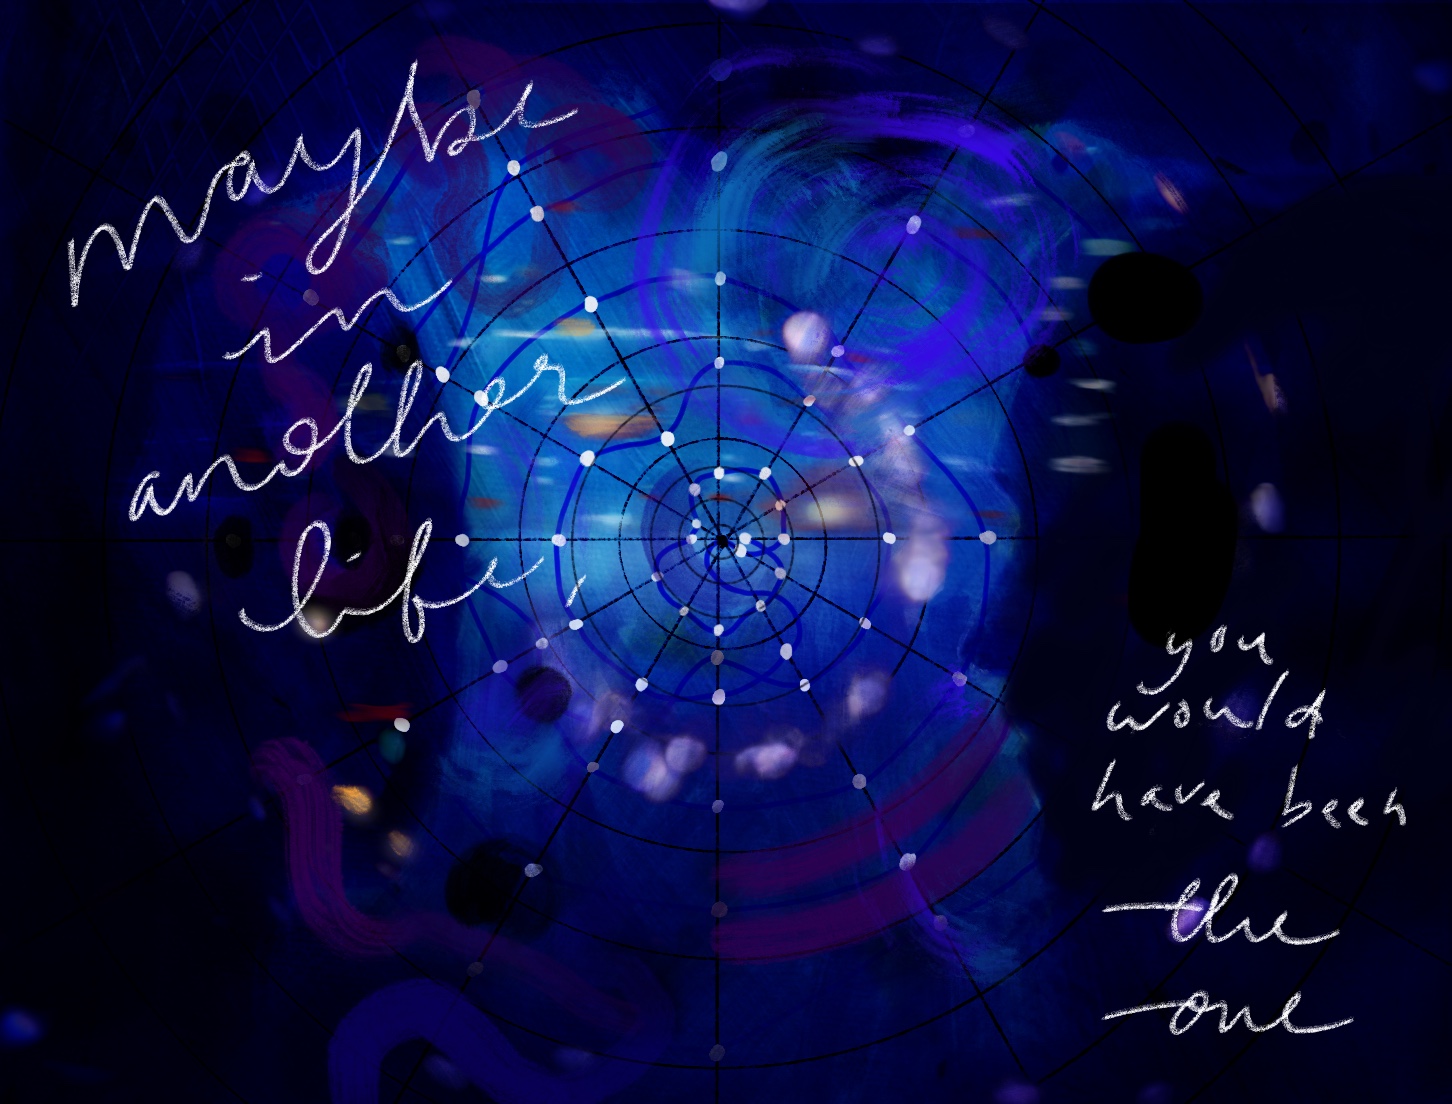 maybe
in
another
life,
you
would
have been
the
one